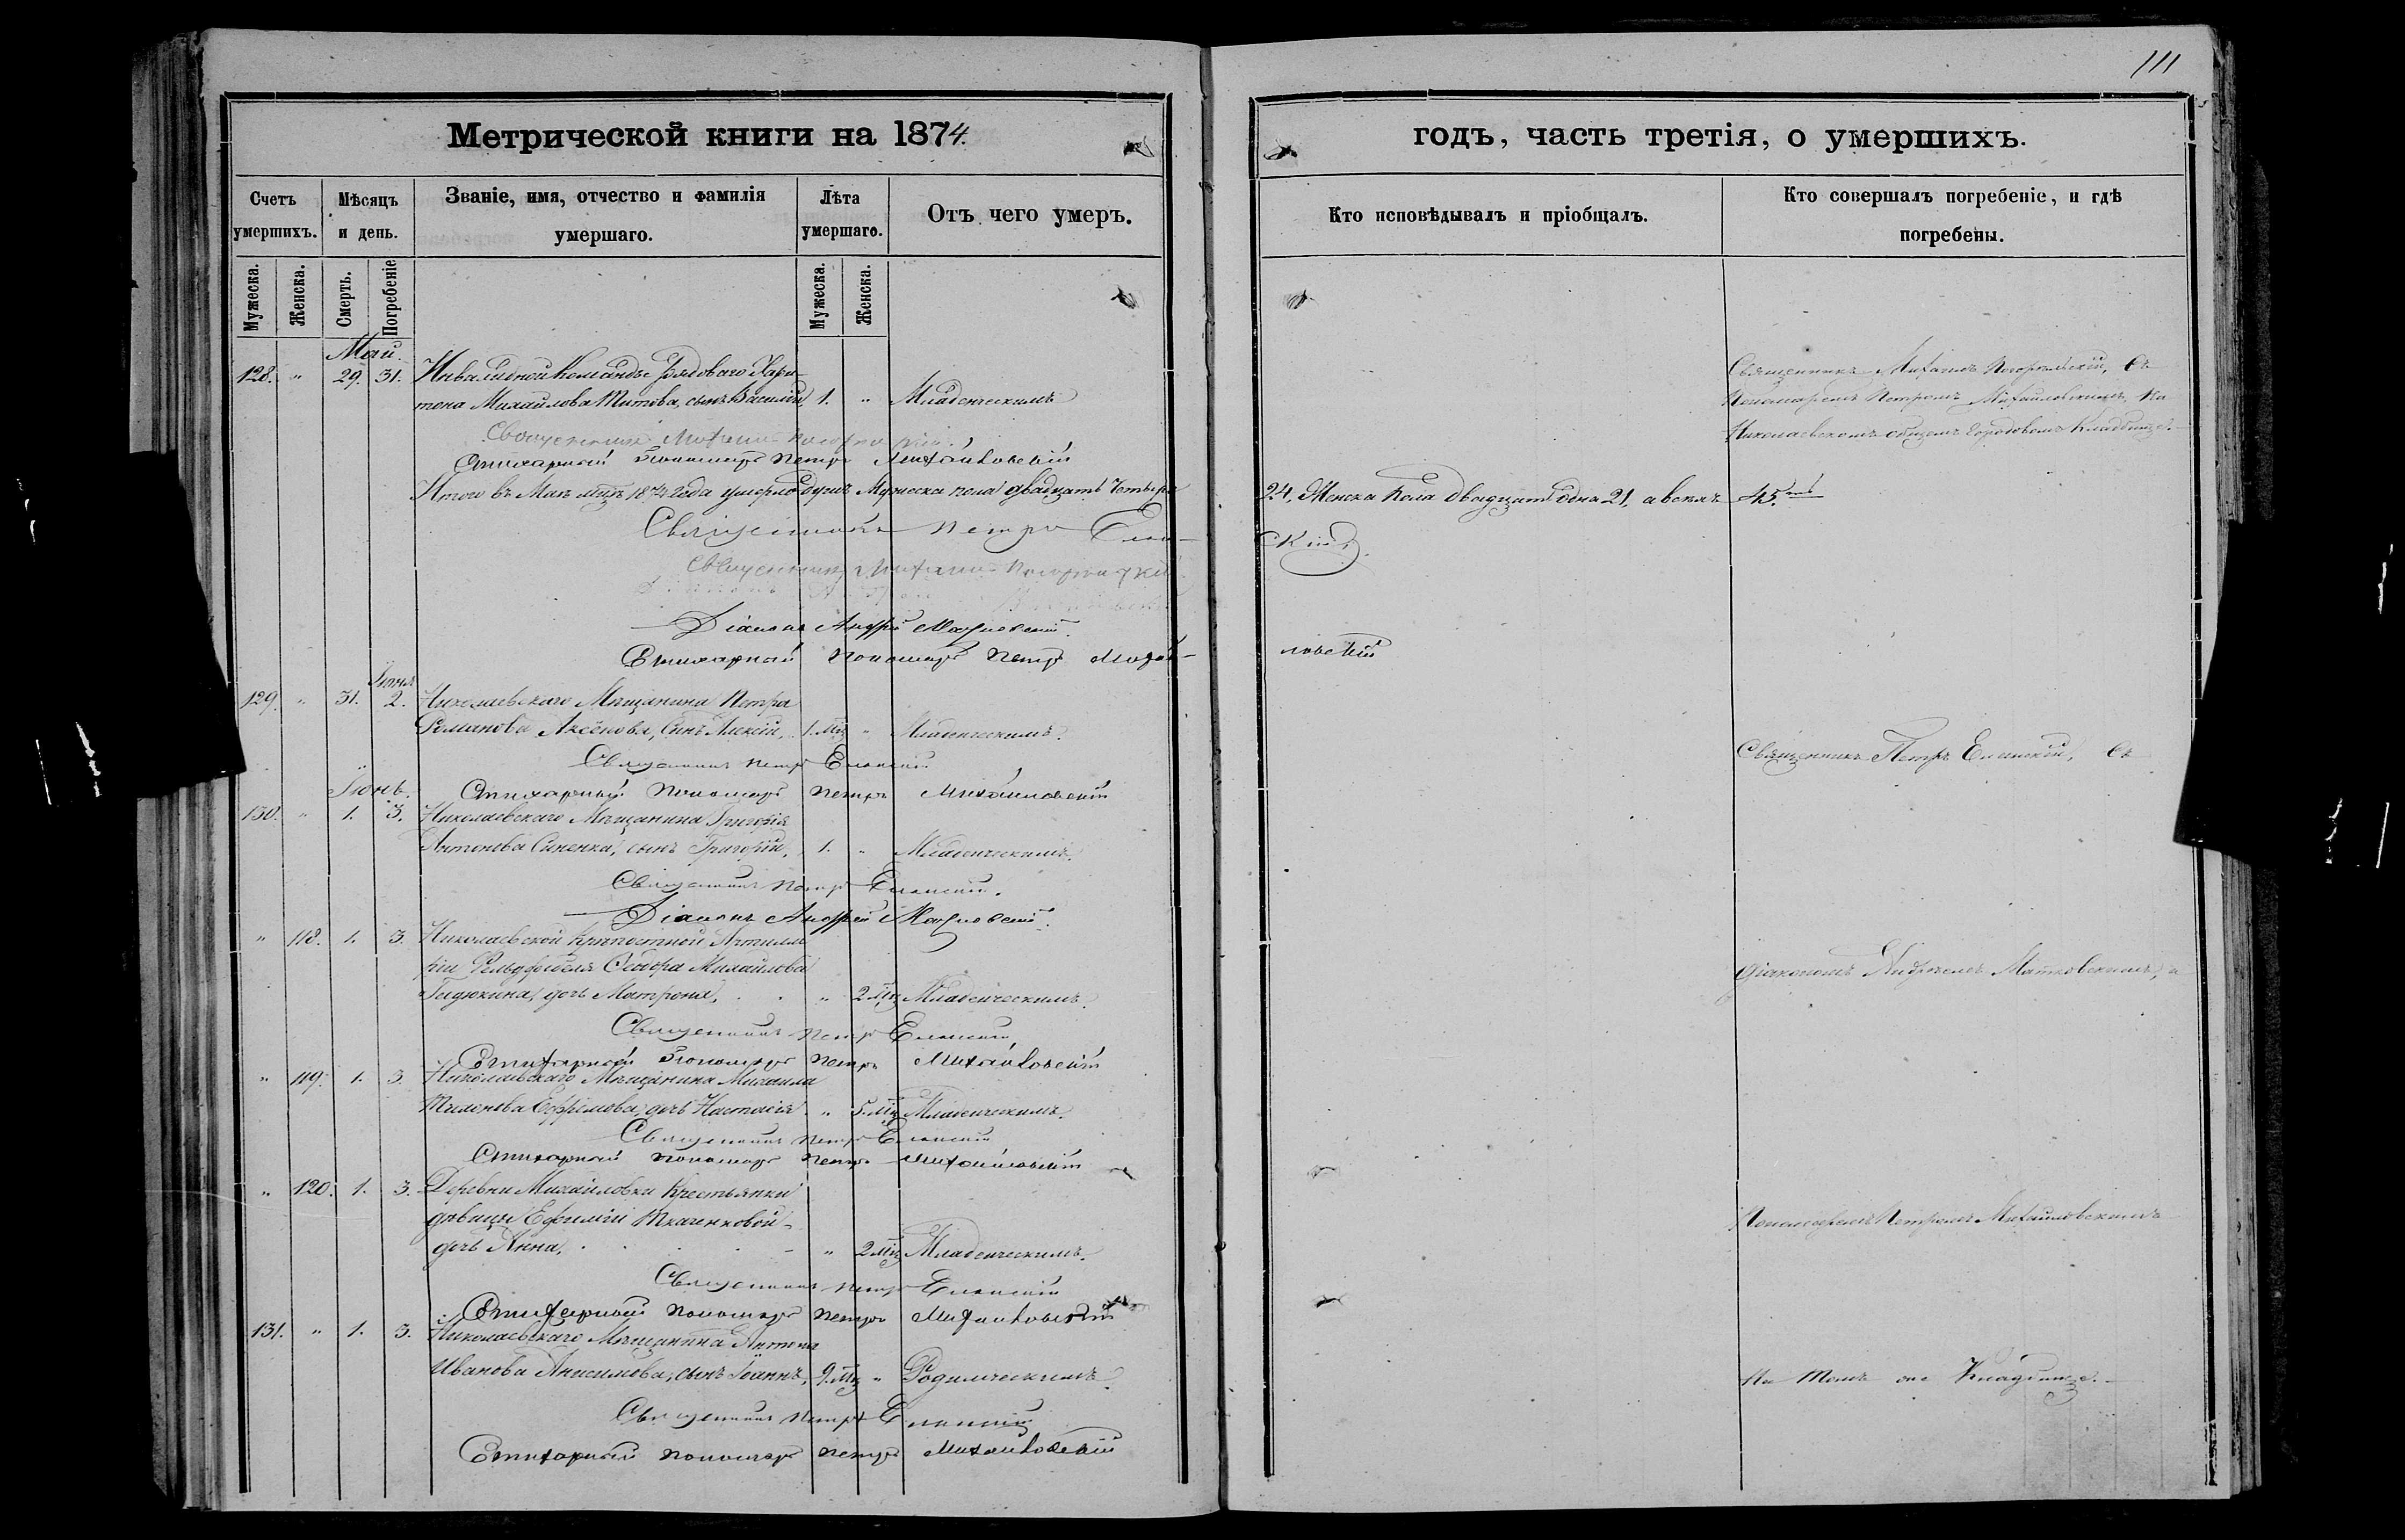 111
Метрической книги на 1874.
годъ, часть третія, о умершихъ.
Счетъ умершихъ.
Мѣсяцъ и день.
Званіе, имя, отчество и фамилія умершаго.
Лѣта умершаго.
Отъ чего умеръ.
Кто исповѣдывалъ и пріобщалъ.
Кто совершалъ погребеніе, и гдѣ погребены.
Мужеска.
Женска.
Смерть.
Погребеніе
Мужеска.
Женска.
Май.
128. " 29. 31. Инвалидной Команды Рядоваго Хари-
тона Михайлова Титова, сынъ Василій, 1. " Младенческимъ
Священникъ Михаилъ
Стихарный Пономарь Петръ Михайловскій
Священникъ Михаилъ Съ
Пономаремъ Петромъ Михайловскимъ, На
Николаевскомъ общемъ Городовомъ Кладбищѣ.
Итого въ Маѣ мцѣ 1874 года умерло душъ Мужеска пола двадцать четыре
24, Женска пола двадцать одна 21, а всехъ 45.
Священникъ Петръ Елан-
скій.
Священникъ Михаилъ
Діаконъ Андрей
Стихарный Пономарь Петръ Михай-
ловскій
Іюня
129. " 31. 2. Николаевскаго Мѣщанина Петра
Романова Аксенова, Сынъ Алексій, 1. мц " Младенческимъ.
Священникъ Петръ Еланскій
Священникъ Петръ Еланскій, Съ
Стихарный Пономарь Петръ Михайловскій
Іюнь.
130. " 1. 3. Николаевскаго Мѣщанина Григорія
Антонова Синенка, сынъ Григорій, 1. " Младенческимъ.
Священникъ Петръ Еланскій.
Діаконъ Андрей
" 118. 1. 3. Николаевской крѣпостной Артилле
ріи Фельдфебеля Ѳедора Михайлова
дочь Матрона, " 2 мц Младенческимъ.
Діакономъ Андреемъ и
Священникъ Петръ Еланскій
Стихарный Пономарь Петръ Михайловскій
" 119. 1. 3. Николаевскаго Мѣщанина Михаила
Ефремова, дочь Настасія " 5. мц Младенческимъ.
Священникъ Петръ Еланскій
Стихарный Пономарь Петръ Михайловскій
" 120. 1. 3. Деревни Михайловки Крестьянки
дѣвицы Ефиміи Ткаченковой
дочь Анна, " 2 мц Младенческимъ.
Пономаремъ Петромъ Михайловскимъ
Священникъ Петръ Еланскій
Стихарный Пономарь Петръ Михайловскій
131. " 1. 3. Николаевскаго Мѣщанина Антона
Иванова Анисимова, сынъ Іоаннъ, 9. мц " Родимческимъ.
На томъ же Кладбищѣ.
Священникъ Петръ Еланскій
Стихарный Пономарь Петръ Михайловскій